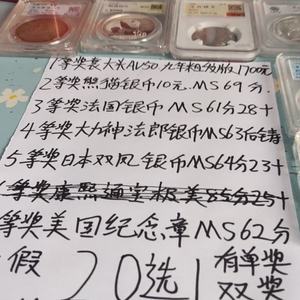 1等奖袁大头AU50九年粗发版1700元
2等奖熊猫银币10元.MS69分
3等奖法国银币MS61分28+
4等奖大力神法郎银币MS63
5等奖日本双凤银币MS64分23+
等奖康熙通宝极美85分25+
等奖美国纪念章MS62分
假20选1有单奖
双奖